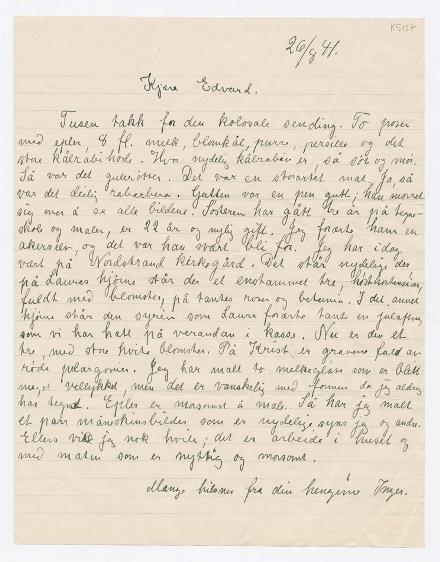 K5127
26/9 41.
Kjære Edvard.
Tusen takk for den kolosale sending. To poser
med epler, 8 fl. melk, blomkål, purre, persille og det
store kålrabihode. Hvor nydelig kålraben er, så søt og mør.
Så var det gulerøtter. Det var en storartet mat. Ja, så
var det deilig rabarbera. Gutten var en pen gutt; han moret
sig med å se alle bildene. Søsteren har gått tre år på tegne-
skole og maler, er 22 år og nylig gift. Jeg forærte ham en
akerseier, og det var han svært bli for. Jeg har idag
vært på Nordstrand kirkegård. Det står nydelig der
på Lauras hjørne står der et enstammet tre,
fuldt med blomster, på tantes roser og betunia. I det annet
hjørne står den syrin som Laura forærte tante en julaften,
som vi har hatt på verandaen i kasse. Nu er der et
tre, med store hvite blomster. På Krist. er gravene fuld av
røde pelargonier. Jeg har malt to melkeglass som er blitt
meget vellykket, men det er vanskelig med formen da jeg aldrig
har tegnet. Epler er morsomt å male. Så har jeg malt
et par måneskinsbilder, som er nydelige, syns jeg og andre.
Ellers vil jeg nok hvile; det er arbeide i huset og
med maten som er nyttig og morsomt.
Mange hilsner fra din hengivne Inger.